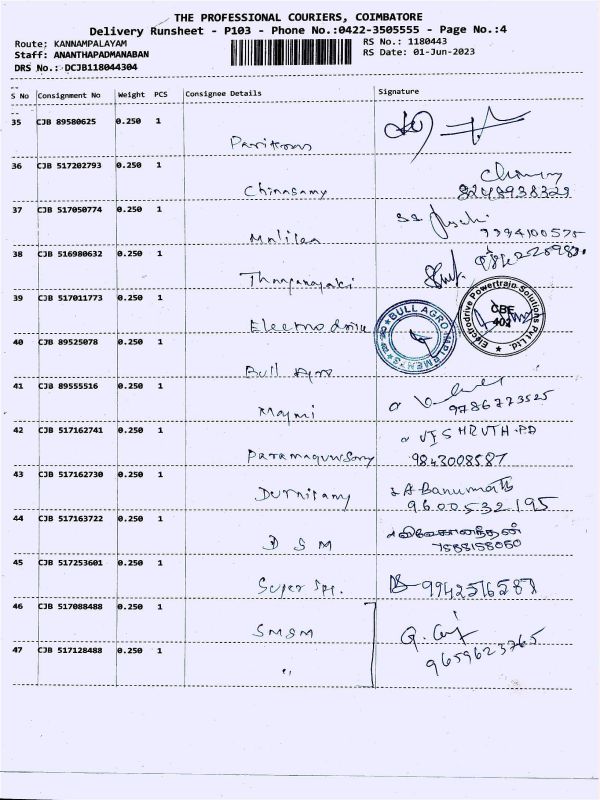 THE PROFESSIONAL COURIERS, COIMBATORE
Delivery Runsheet - P103 - Phone No.:0422-3505555 - Page No.:4
Route: KANNAMPALAYAM
Staff: ANANTHAPADMANABAN
DRS No.: DCJB118044304
RS No.: 1180443
RS Date: 01-Jun-2023
S No Consignment No Weight PCS Consignee Details Signature
35 CJB 89580625 0.250 1
36 CJB 517202793 0.250 1
Chinnasamy 8248938322
37 CJB 517050774 0.250 1
9994100575
38 CJB 516980632 0.250 1
Thayanayaki
39 CJB 517011773 0.250 1
Electrodrive
Electrodrive Powertrain Solutions Pvt Ltd.
CBE
402
40 CJB 89525078 0.250 1
BULL AGRO IMPLEMENTS
Bull Agro
41 CJB 89555516 0.250 1
9786773525
42 CJB 517162741 0.250 1
VISHRUTH.PA
9843008587
43 CJB 517162730 0.250 1
Duraisamy A Banumathi
9600532195
44 CJB 517163722 0.250 1
DSM விவேகானந்தன்
7558158050
45 CJB 517253601 0.250 1
Super Spi. 9942516587
46 CJB 517088488 0.250 1
SMSM
47 CJB 517128488 0.250 1
" 9659623765